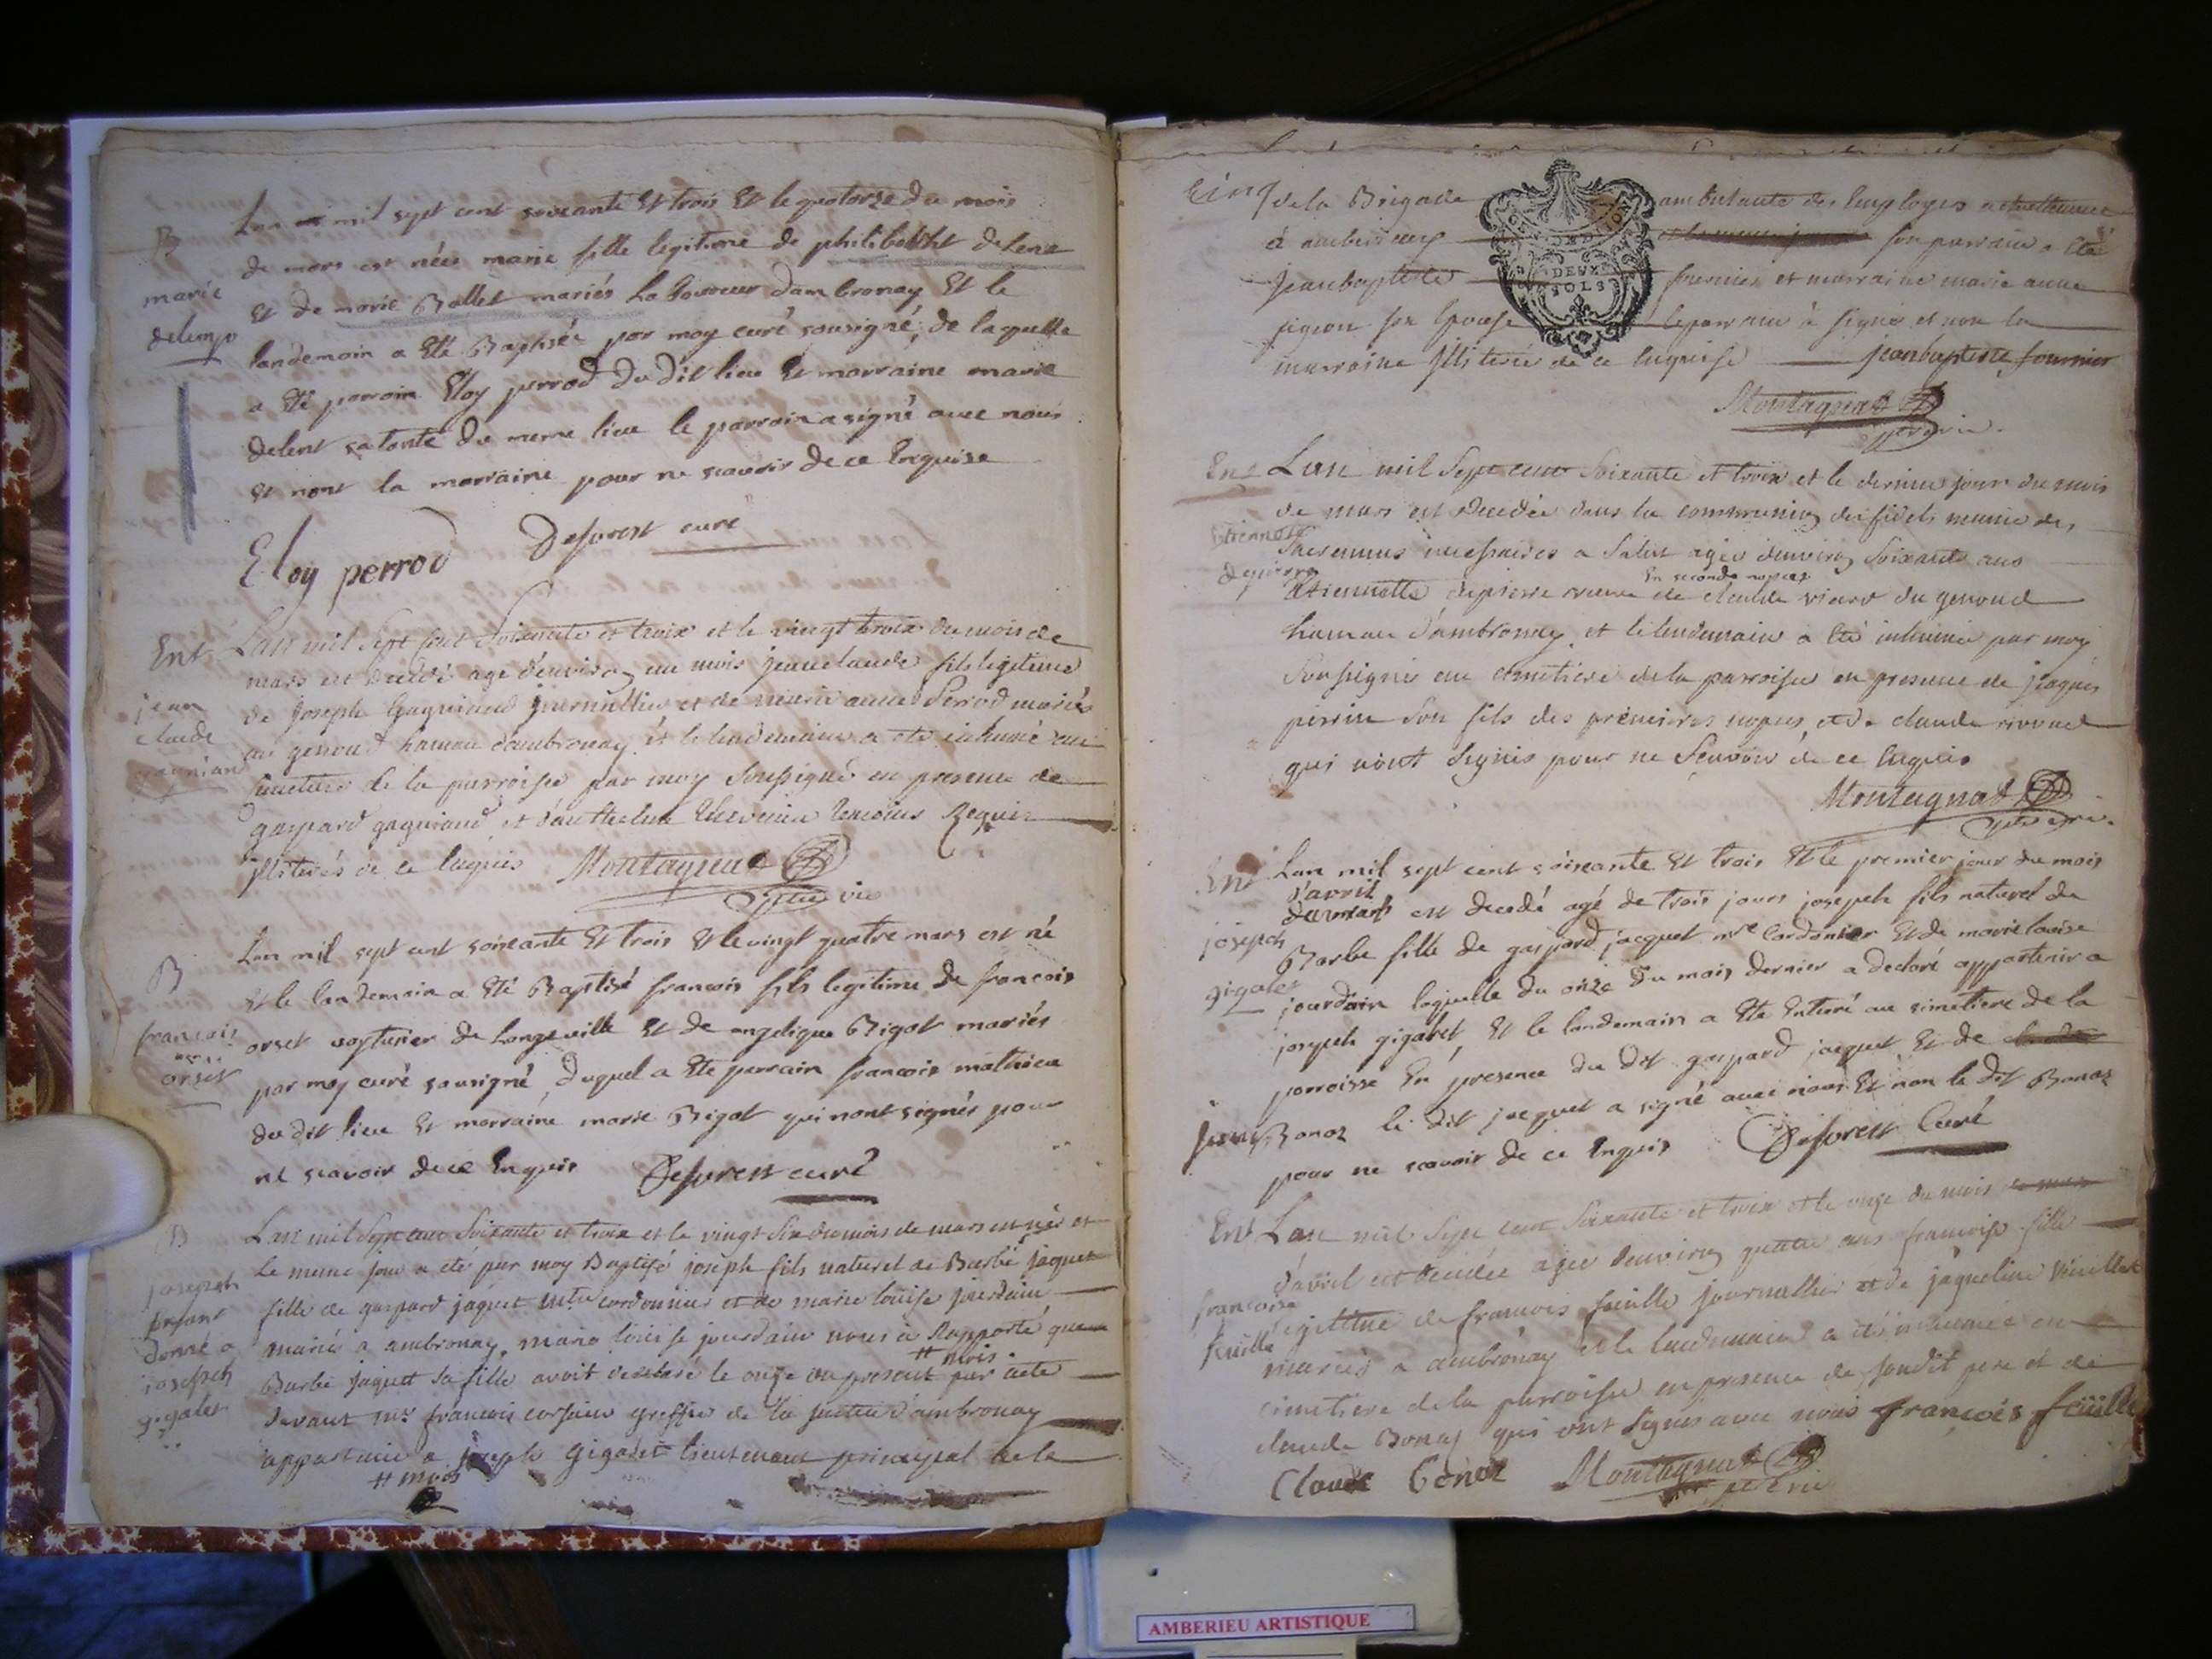 B
marie
delenp
Lan mil sept cent soixante Et trois Et le quatorze du mois
de mars est née marie fille legitime de philibebht delene
Et de marie Ballet mariés Laboureur dambronay Et le
landemain a Eté Baptisée par moy curé sousigné, de laquelle
a Eté parrain Eloy perrod du dit lieu Et marraine marie
delent sa tante du meme lieu le parrain a signé avec nous
Et nont la marraine pour ne scavoir de ce Enquise
Eloy perrod Deforest curé
Ent
jean
claude
gagniand
Lan mil sept cent soixante et trois et le vingt trois du mois de
mars est decedé agé denviron un mois jean claude fils legitime
de joseph Gagniand journallier et de marie anne Perrod mariés
au genoud hameau dambronay et le lendemain a eté inhumé au
simetiere de la parroisse par moy soussigné en presence de
gaspard gagniand et dauthelme thevenin temoins Requis
illiterés de ce Enquis Montagnat
ptre vic
B
francois
orset
Lan mil sept cent soixante Et trois Et le vingt quatre mars est né
Et le landemain a Eté Baptisé francois fils legitime de francois
orset voyturier de Longeville Et de angelique Bigot mariés
par moy curé sousigné, duquel a Ete parrain francois mathieu
du dit lieu Et marraine marie Bigot qui nont signés pour
ne scavoir de ce Enquis Deforest curé
B
joseph
enfant
donné a
joseph
gigalet
Lan mil sept cent soixante et trois et le vingt six du mois de mars est né et
Le meme jour a eté par moy Baptisé joseph fils naturel de Barbe jaquet
fille de gaspard jaquet mtre cordonnier et de marie louise jourdain
mariés a ambronay, marie louise jourdain nous a Rapporté que
Barbe jaquet sa fille avoit declaré le onze du present # mois par acte
devant me francois corsain greffier de la justice d'ambronay
appartenir a joseph Gigalet lieutenant principal de la
# mois
de la Brigade ambulante des Employes actuellement
á ambronay son parrain a Eté
Jean baptiste fournier et marraine marie anne
pigeon son Epouse le parrain à signé et non la
marraine illiterée de ce Enquise jean baptiste fournier
Montagnat
ptre vic.
Ent
Etiennette
depierre
Lan mil sept cent soixante et trois et le dernier jour du mois
de mars est decedée dans la communion des fidels munie des
sacremens necessaires a salut agée denviron soixante ans
Etiennette depierre veuve En seconde nopces de claude viard du genoud
hameau d'ambronay, et le lendemain a Eté inhumée par moy
soussigné au cimetiere de la parroisse en presence de jaques
perrin son fils des premieres nopces, et de claude
qui n'ont signés pour ne scavoir de ce Enquis
Montagnat
ptre vic.
Ent
joseph
gigalet
Lan mil sept cent soixante Et trois Et le premier jour du mois
d'avril
est decedé agé de trois jours joseph fils naturel de
Barbe fille de gaspard jacquet mre Cordonier Et de marie louise
jourdain laquelle du onze du mois dernier a declaré appartenir a
joseph gigalet, Et le landemain a Eté Enterré au simetiere de la
parroisse En presence du dit gaspard jacquet Et de
Jean Banoz le dit jacquet a signé avec nous Et non le dit Banoz
pour ne scavoir de ce Enquis Deforest Curé
Ent
francoise
feuille
Lan mil sept cent soixante et trois et le onze du mois
d'avril est decidée agée denviron quatre ans francoise fille
legitime de francois feuille journallier et de jaqueline
mariés a ambronay et le lendemain a eté inhumée au
cimetiere de la parroisse en presence de sondit pere et de
claude Bonaz qui ont signés avec nous françois feüille
Claude Bonaz Montagnat
ptre vic
DEUX
SOLS
AMBERIEU ARTISTIQUE